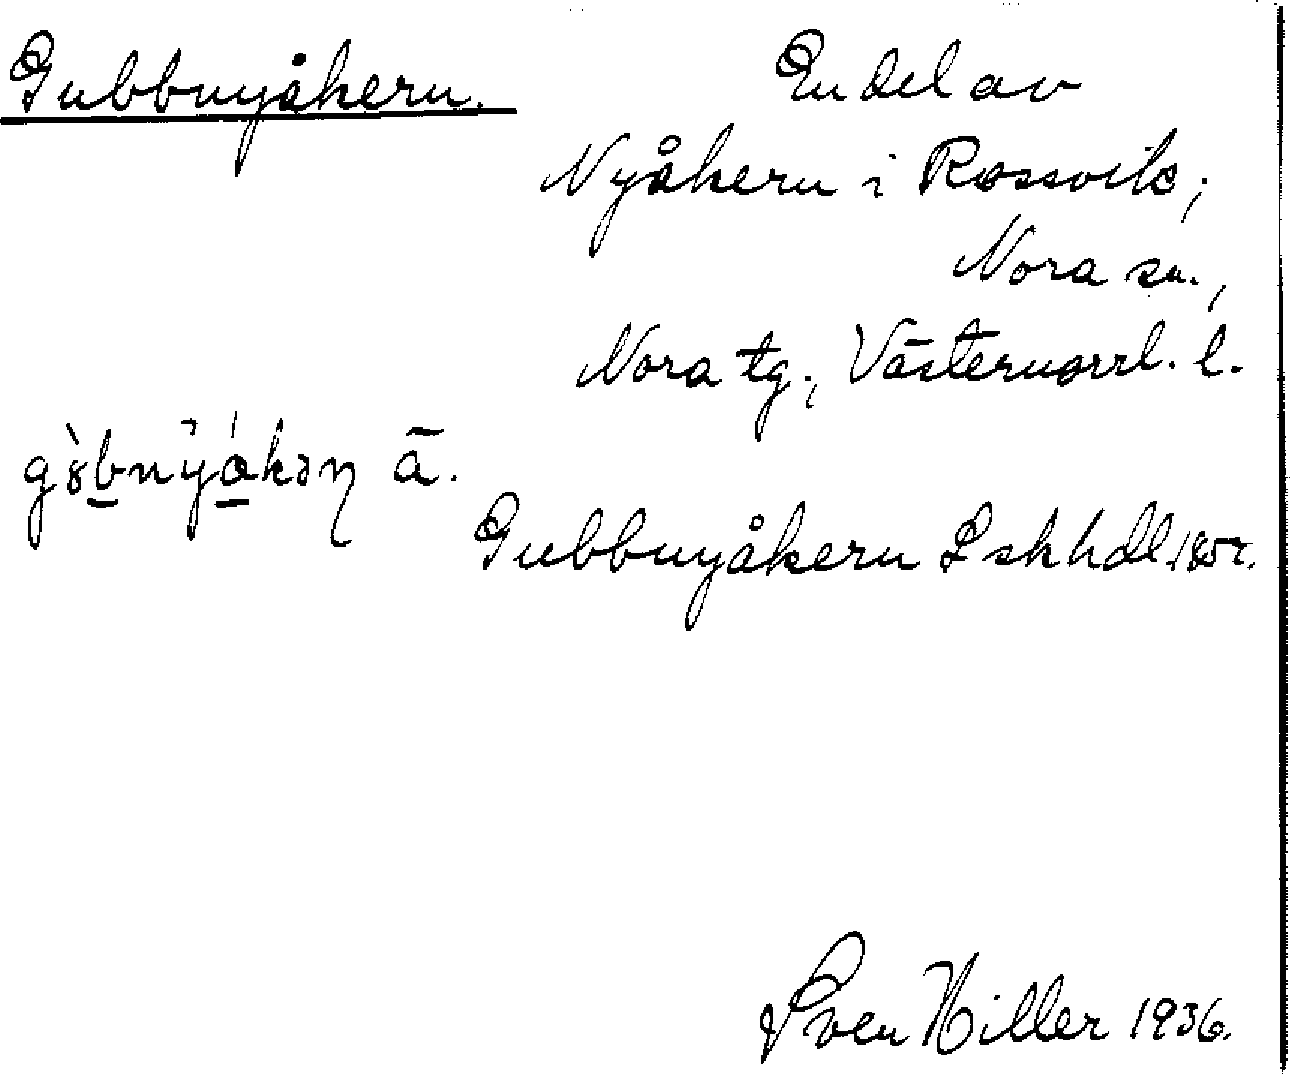 Gubbnyåkern.
En del av
Nyåkern i Rossvik,
Nora sn.,
Nora tg., Västernorrl. l.
ā.
Gubbnyåkern Lskhdl
Sven Hiller 1936.